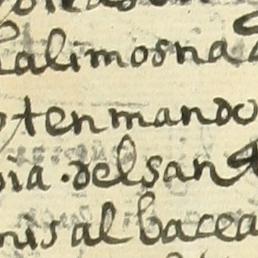 alimosna
ten mando
ia. del san
mis albacea